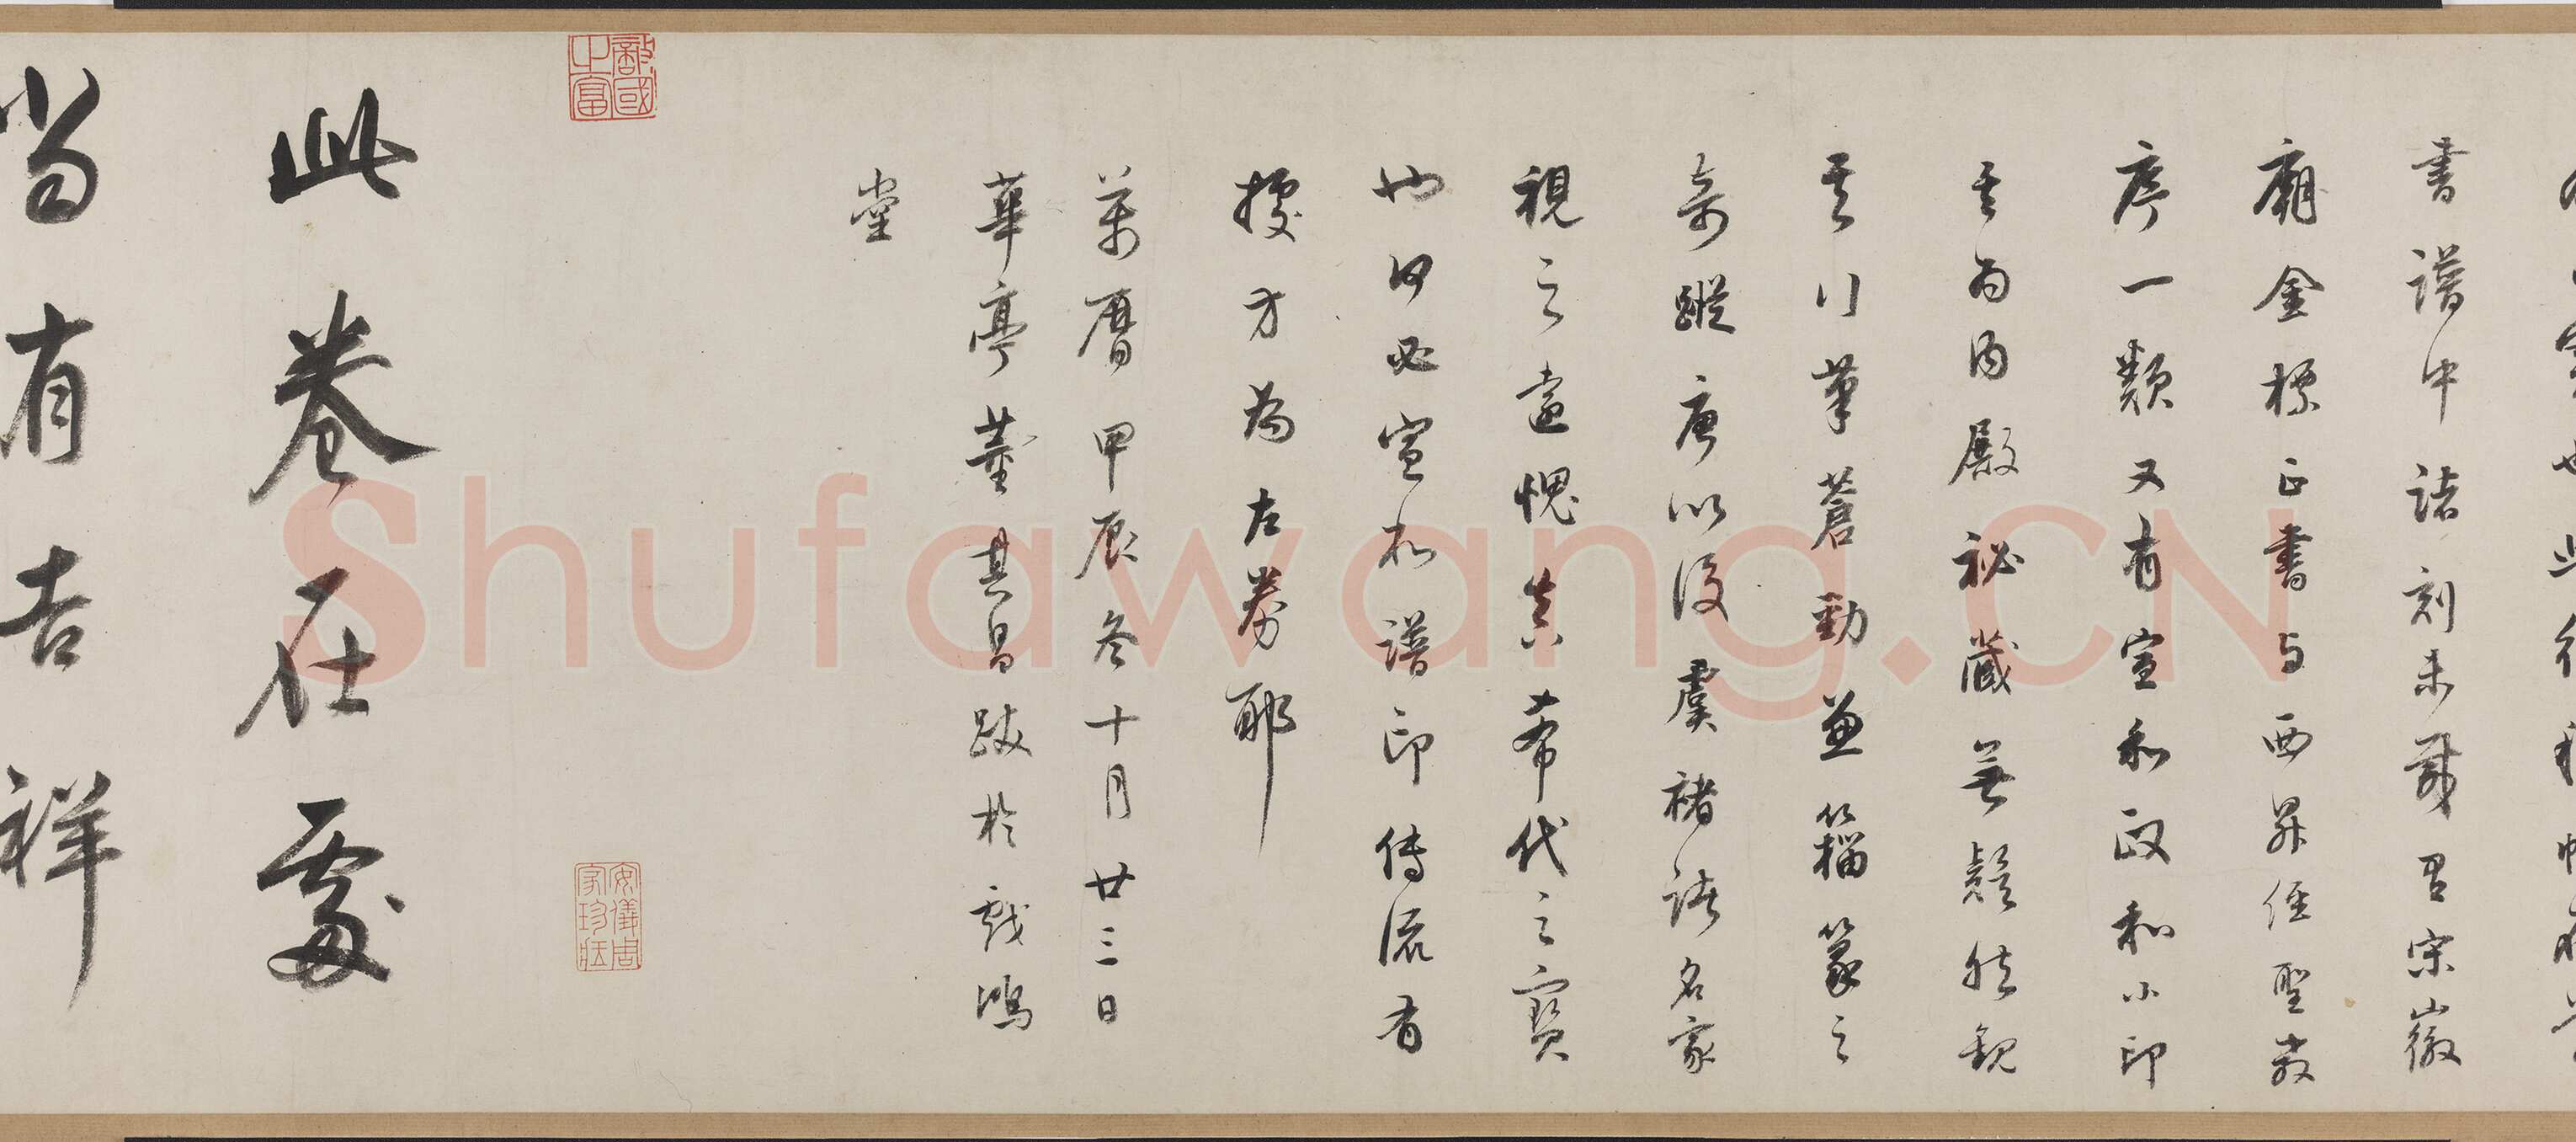 書譜中諸刻未載且宋徽
廟金標正書與西昇經聖教
序一類又有宣和政和小印
其為內殿秘藏無疑然觀
其行筆蒼勁兼籀篆之
奇蹤唐以後虞褚諸名家
視之遠愧真希代之寶
也何必宣和譜印傳流有
據方為左券耶
萬曆甲辰冬十月廿三日
華亭董其昌跋於戲鴻
堂
敵國之富
安儀周家珍藏
此卷在處
當有吉祥
Shufawang.CN